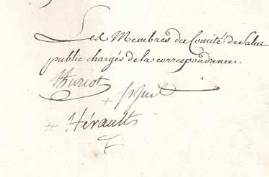 Les Membres du Comité de Salut
public chargés de la correspondance.
Thuriot
Hérault